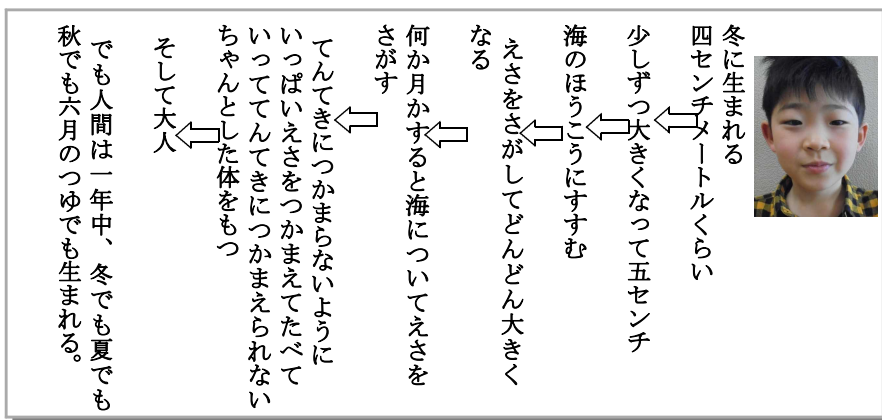 冬に生まれる
四センチメートルくらい
少しずつ大きくなって五センチ
海のほうこうにすすむ
えさをさがしてどんどん大きく
なる
何か月かすると海についてえさを
さがす
てんてきにつかまらないように
いっぱいえさをつかまえてたべて
いっててんてきにつかまえられない
ちゃんとした体をもつ
そして大人
でも人間は一年中、冬でも夏でも
秋でも六月のつゆでも生まれる。